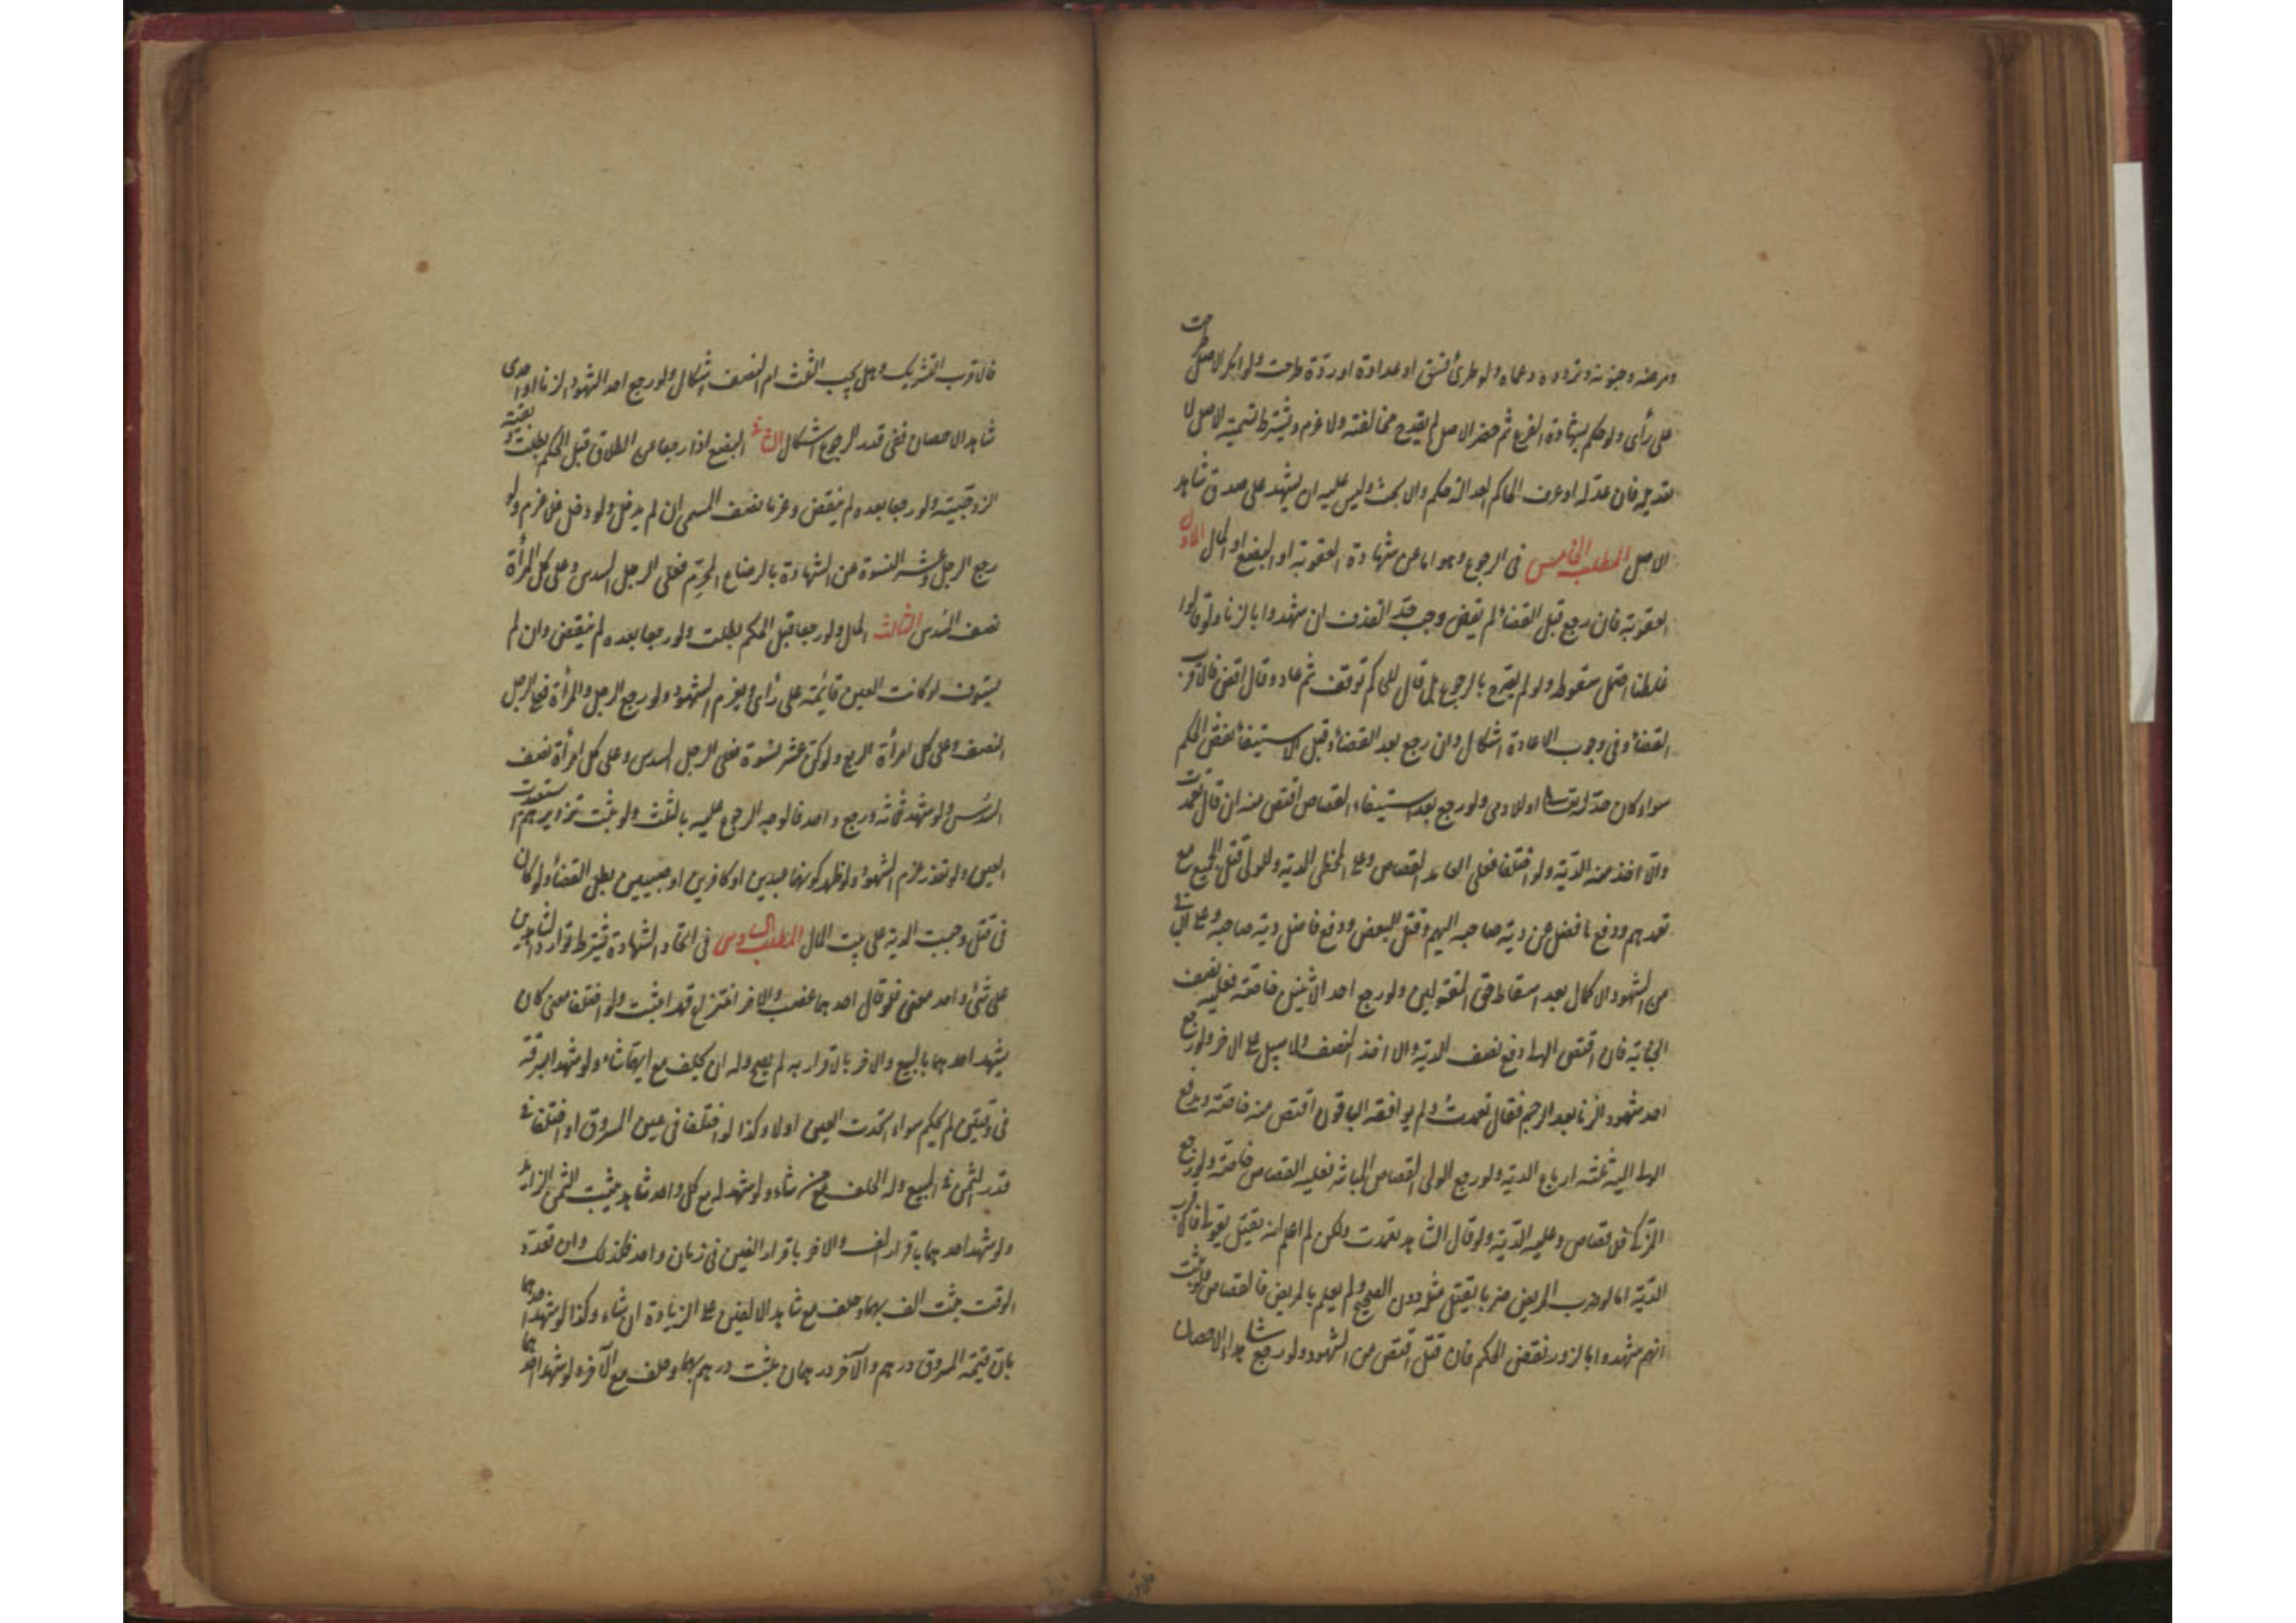 ومرضه وجنونه وتردده وعماه ولو طرئ فسق او عداوة او ردة طرحت ولو انكر الاصل طرحت
على رأى ولو حكم بشهادة الفرع ثم حضر الاصل لم يقدح مخالفته ولا غرم ويشترط تسمية الاصل لا
تعديله فان عدله او عرف الحاكم العدالة حكم والا بحث وليس عليه ان يشهد على صدق شاهد
الاصل المطلب الخامس فى الرجوع وهو اما عن شهادة العقوبة او البضع او المال الاول
العقوبة فان رجع قبل القضاء لم يقض وجب حد القذف ان شهدوا بالزنا ولو قالوا
غلطنا احتمل سقوطه ولو لم يصرح بالرجوع بل قال للحاكم توقف ثم عاد وقال اقض فالاقرب
القضاء وفى وجوب الاعادة اشكال وان رجع بعد القضاء وقبل الاستيفاء نقض الحكم
سواء كان حدا لله تعالى او لادمى ولو رجع بعد استيفاء القصاص اقتص منه ان قال تعمدت
والا اخذ منه الدية ولو اختلفا فعلى العامد القصاص وعلى المخطى الدية وللولى قتل الجميع مع
تعمدهم ودفع ما فضل عن دية صاحبه اليهم وقتل البعض ودفع فاضل دية صاحبه وعلى الباقى
من الشهود الاكمال بعد اسقاط حق المقتولين ولو رجع احد الاثنين خاصة فعليه نصف
الجناية فان اقتص الولى دفع نصف الدية والا اخذ النصف ولا سبيل على الاخر ولو رجع
احد شهود الزنا بعد الرجم فقال تعمدت ولم يوافقه الباقون اقتص منه خاصة ويدفع
الولى اليه ثلثة ارباع الدية ولو رجع الولى القصاص المباشر فعليه القصاص خاصة ولو رجع
المزكى فلا قصاص وعليه الدية ولو قال الشاهد تعمدت ولكن لم اعلم انه يقتل بقولى فالاقرب
الدية اما لو ضرب المريض ضربا يقتل مثله دون الصحيح ولم يعلم بالمريض فالقصاص ولو ثبت
انهم شهدوا بالزور نقض الحكم فان قتل اقتص من الشهود ولو رجع شاهدا الاحصان
فالاقرب التشريك وهل يجب الثلث ام النصف اشكال ولو رجع احد الشهود الزنا او احدى
شاهد الاحصان ففى قدر الرجوع اشكال الثانى البضع اذا رجعا عن الطلاق قبل الحكم بطلت وبقيت
الزوجية ولو رجعا بعده لم ينقض وغرما نصف المسمى ان لم يدخل ولو دخل فلا غرم ولو
رجع الرجل وعشر النسوة عن الشهادة بالرضاع المحرم فعلى الرجل السدس وعلى كل امرأة
نصف السدس الثالث المال ولو رجعا قبل الحكم بطلت ولو رجعا بعده لم ينقض وان لم
يستوف او كانت العين قائمة على رأى ويغرم الشهود ولو رجع الرجل والمرأة فعلى الرجل
النصف وعلى كل امرأة الربع ولو كن عشر نسوة فعلى الرجل السدس وعلى كل امرأة نصف
السدس ولو شهد ثلثة ورجع واحد فالوجه الرجوع عليه بالثلث ولو ثبت تزويرهم استعيدت
العين ولو تعذر غرم الشهود ولو ظهر كونهما عبدين او كافرين او صبيين بطل القضاء ولو كان
فى قتل وجبت الدية على بيت المال المطلب السادس فى اتحاد الشهادة يشترط توارد الشاهدين
على شئ واحد معنى فلو قال احدهما غصب والاخر انتزع قهرا ثبت ولو اختلفا معنى كان
يشهد احدهما بالبيع والاخر بالاقرار به لم يصح وله ان يحلف مع ايهما شاء ولو شهدا بسرقة
فى وقتين لم يحكم سواء اتحدت العين او لا وكذا لو اختلفا فى عين المسروق او اختلفا فى
قدر الثمن فى المبيع وله الحلف مع من شاء ولو شهد له مع كل واحد شاهد يثبت الثمن الزائد
ولو شهد احدهما باقرار الف والاخر باقرار الفين فى زمان واحد فكذلك وان تعدد
الوقت يثبت الف بهما وحلف مع شاهد الالفين على الزيادة ان شاء وكذا لو شهد احدهما
بان قيمة المسروق درهم والآخر درهمان يثبت درهم بهما وحلف مع الآخر ولو شهد احدهما